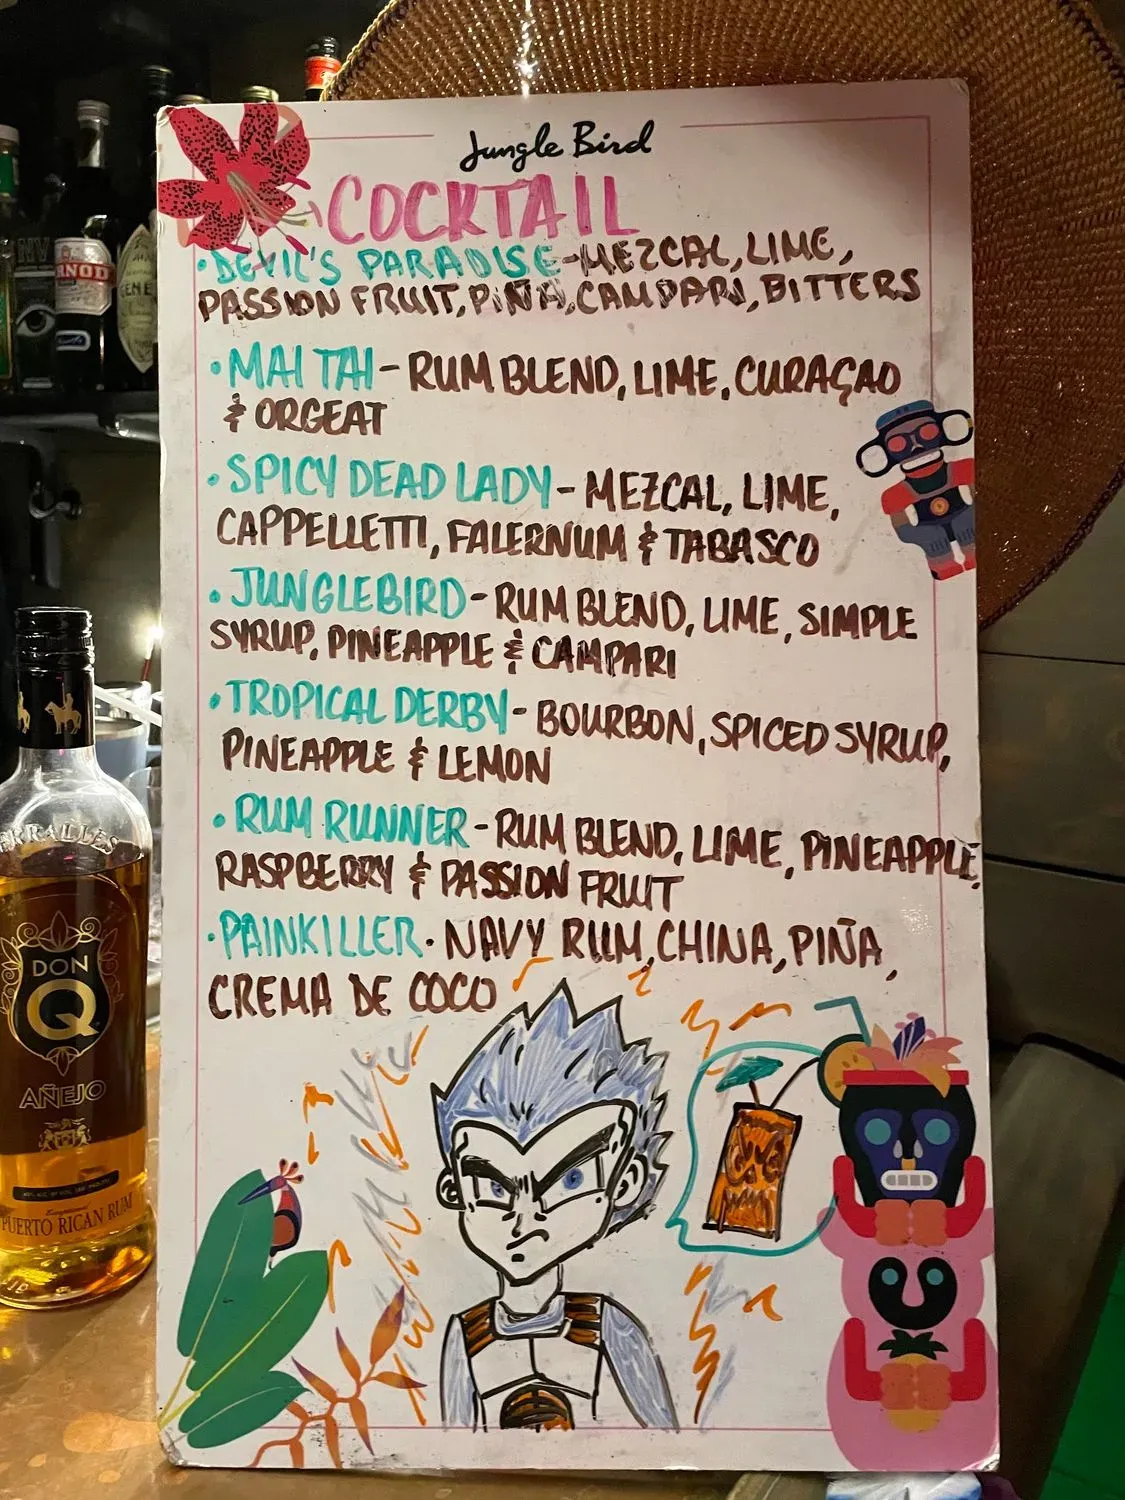 Jungle Bird
COCKTAIL
·DEVIL'S PARADISE-MEZCAL, LIME,
PASSION FRUIT, PIÑA, CAMPARI, BITTERS
·MAI TAI- RUM BLEND, LIME, CURAÇAO
& ORGEAT
·SPICY DEAD LADY- MEZCAL, LIME,
CAPPELLETTI, FALERNUM & TABASCO
·JUNGLEBIRD-RUM BLEND, LIME, SIMPLE
SYRUP, PINEAPPLE & CAMPARI
·TROPICAL DERBY- BOURBON, SPICED SYRUP,
PINEAPPLE & LEMON
·RUM RUNNER-RUM BLEND, LIME, PINEAPPLE,
RASPBERRY & PASSION FRUIT
·PAINKILLER· NAVY RUM, CHINA, PIÑA,
CREMA DE COCO
DON
Q
AÑEJO
PUERTO RICAN RUM